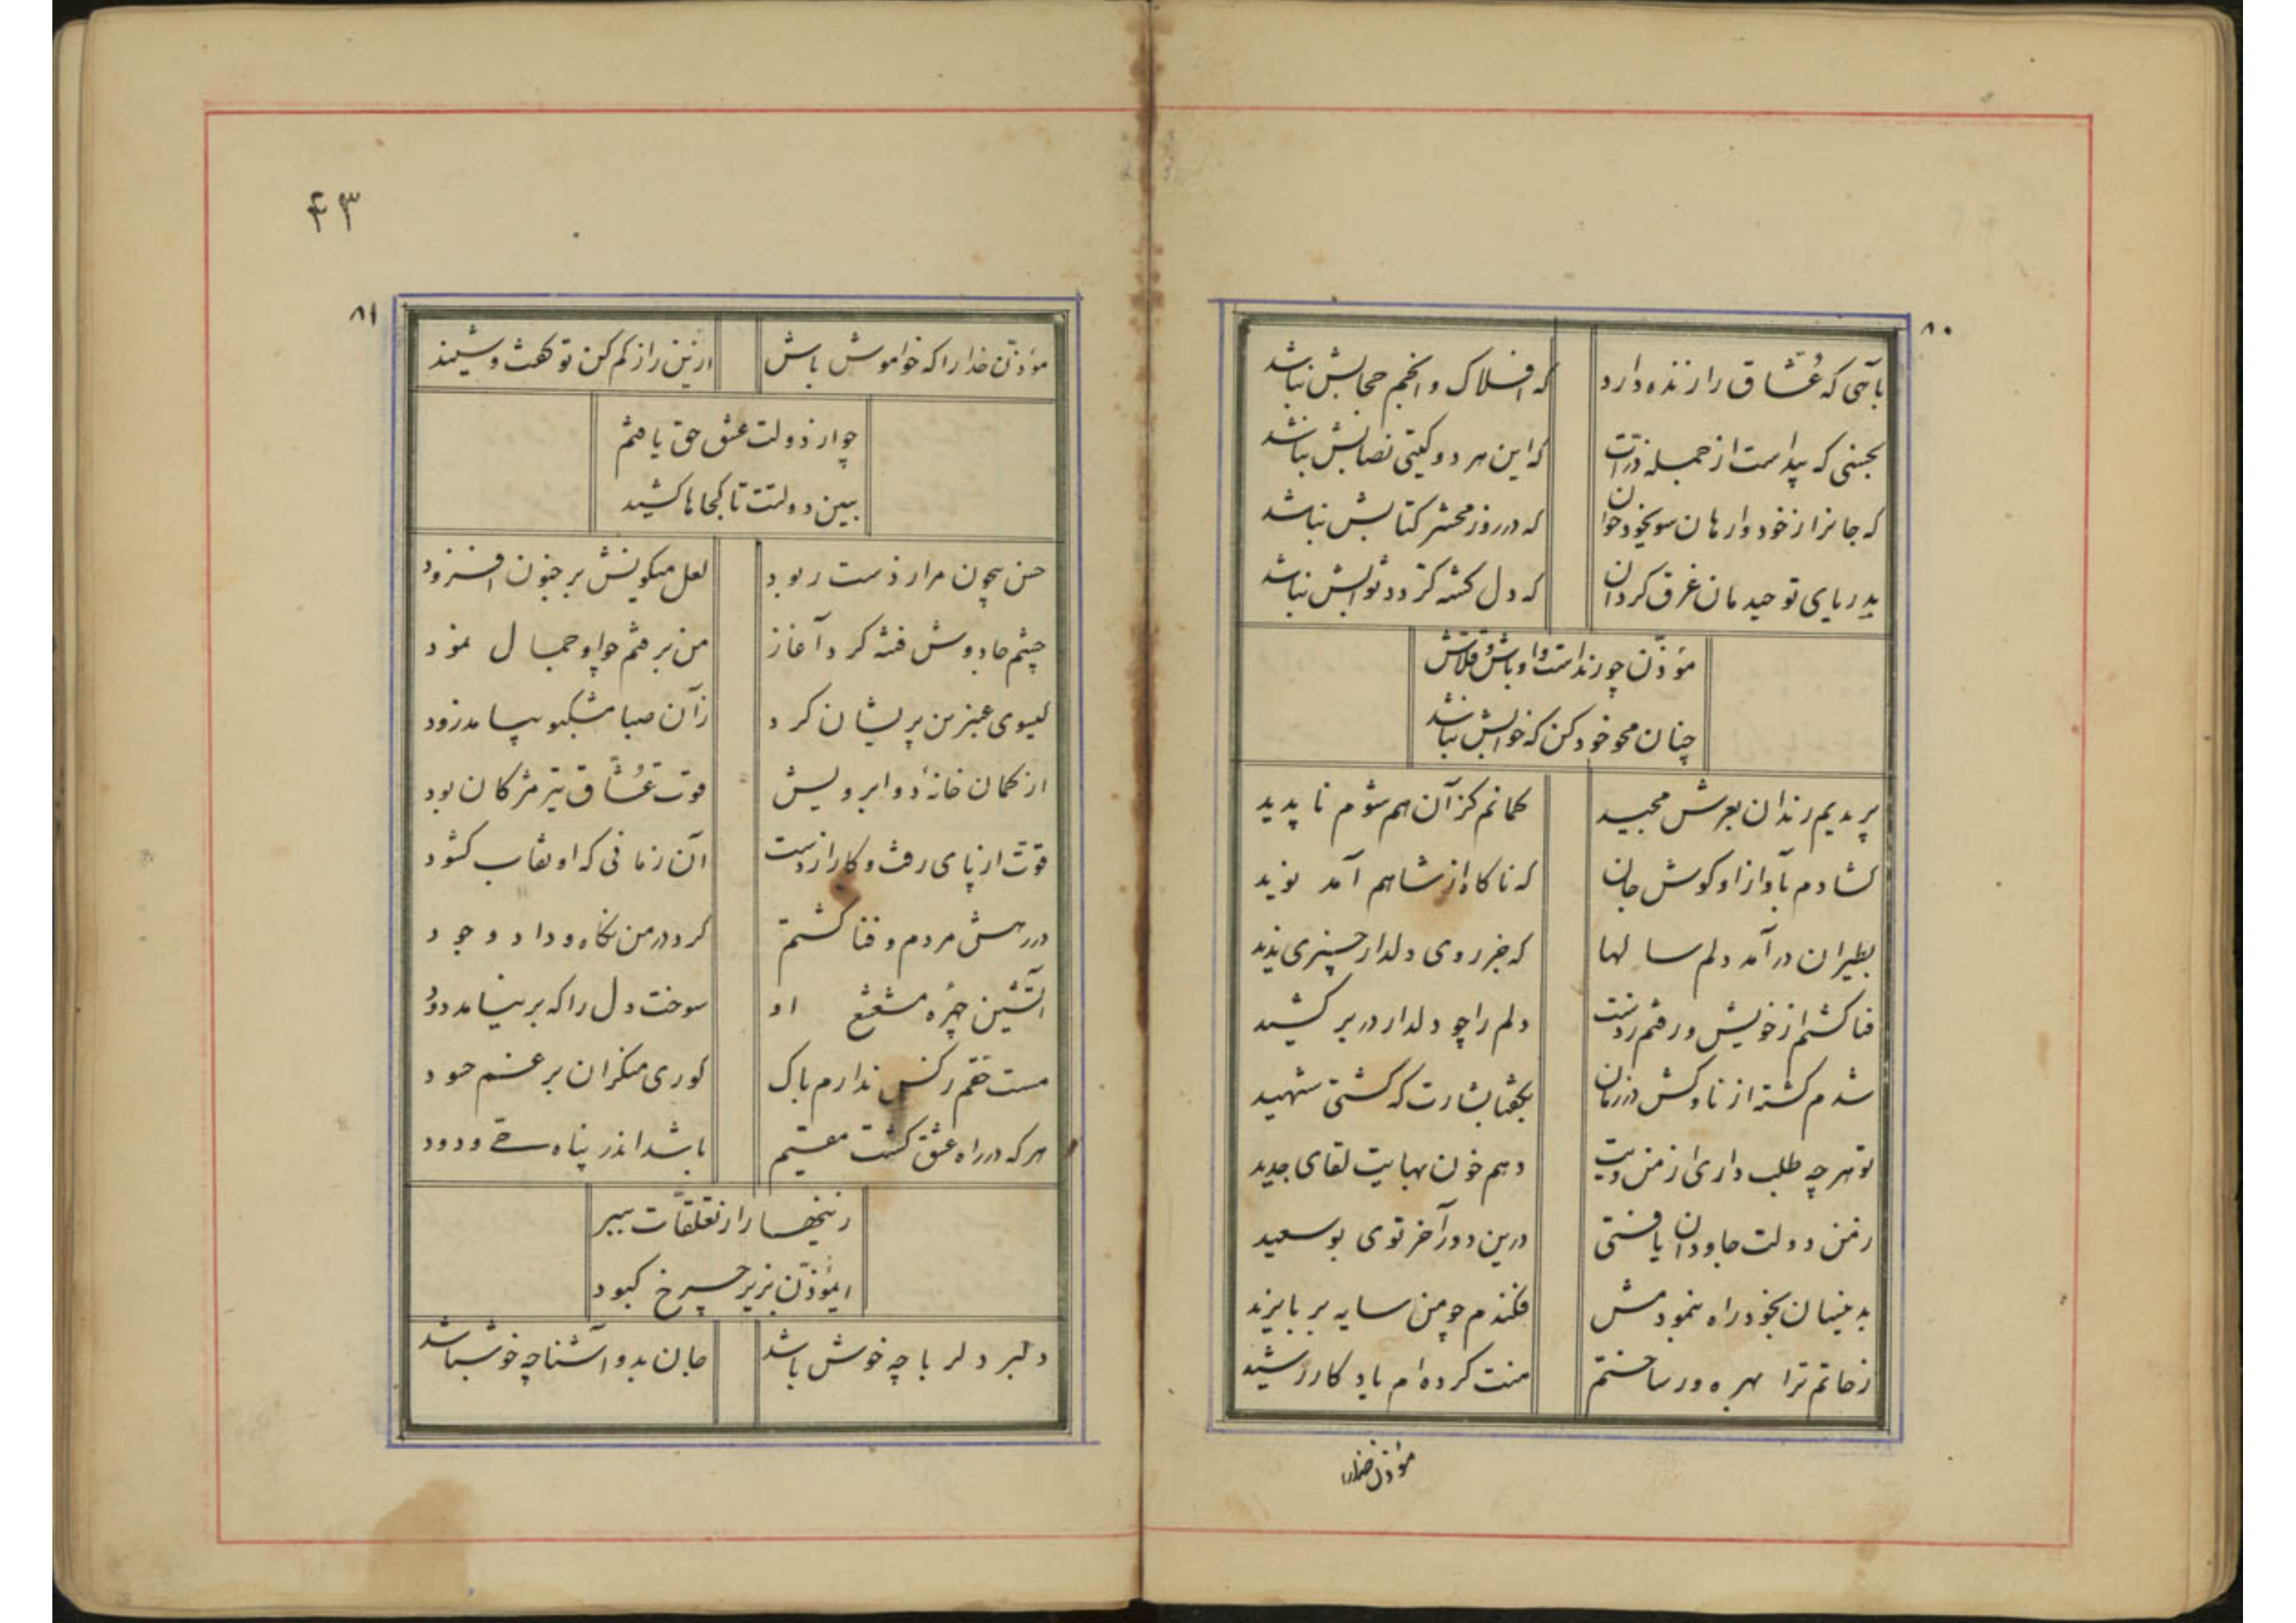 ۸۰
بآهی که عُشّاق را زنده دارد که افلاک و انجم حجابش نباشد
بحسنی که پیداست از جمله ذرّات که این هر دو گیتی نصابش نباشد
که جانرا ز خود وارهان سویخود خوان که در روز محشر کتابش نباشد
بدریای توحیدمان غرق گردان که دل کشته گردد ثوابش نباشد
مؤذّن چو رنداست و اوباش و قلاش
چنان محو خود کن که خوابش نباشد
پریدیم رندان بعرش مجید گمانم کز آن هم شوم ناپدید
گشادم بآواز او گوش جان که ناگاه از شاهم آمد نوید
بطیران درآمد دلم سالها که جز روی دلدار چیزی ندید
فنا گشتم از خویش و رفتم ز دست دلم را چو دلدار در بر کشید
شدم کشته از ناوکش در زمان بگفتا بشارت که گشتی شهید
تو هر چه طلب داری از من دیت دهم خون بهایت لقای جدید
ز من دولت جاودان یافتی درین دور آخر توی بوسعید
بدینسان بخود راه بنمودمش فکندم چو من سایه بر بایزید
ز خاتم ترا بهره ور ساختم منت کرده‌ام یاد کار رشید
مؤذن خدارا
۴۳
۸۱
مؤذّن خدا را که خواموش باش ازین راز کم کن تو گفت و شنید
چو از دولت عشق حق یافتم
ببین دولتت تا کجاها کشید
حسن بیچون مرا ز دست ربود لعل میگونش بر جنون افزود
چشم جادوش فتنه کرد آغاز من برفتم چو او جمال نمود
گیسوی عنبرین پریشان کرد زآن صبا مشکبو بیامد زود
از کمان خانهٔ دو ابرویش قوت عُشّاق تیر مژگان بود
قوّت از پای رفت و کار از دست آن زمانی که او نقاب گشود
در رهش مردم و فنا گشتم کرد در من نگاه و داد وجود
آتشین چهرهٔ مشعشع او سوخت دل را که برنیامد دود
مست حقم ز کس ندارم باک کوری منکران بر غم حسود
هر که در راه عشق گشت مقیم باشد اندر پناه حی ودود
رنجها را ز تعلقّات ببر
ایمؤذّن بزیر چرخ کبود
دلبر دلربا چه خوش باشد جان بدو آشنا چه خوشباشد